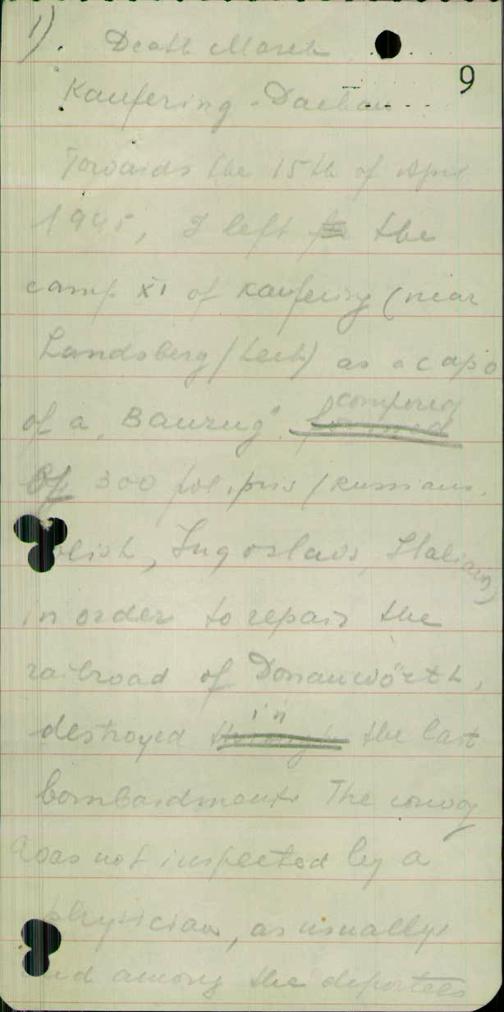 1). Death March
9
Kaufering - Dachau
Towards the 15th of Apr
1945, I left the
camp XI of Kaufering (near
Landsberg/Lech) as a capo
of a "Bauzug" composed
Of 300 pol. pris (Russians,
Polish, Jugoslavs, Italians)
in order to repair the
railroad of Donauwörth,
destroyed in the last
bombardments. The convoy
was not inspected by a
physician, as usually
and among the deportees